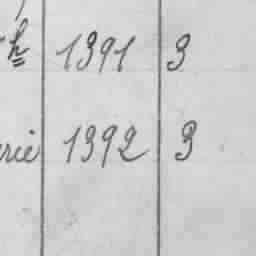 h 1391 3
rie 1392 3